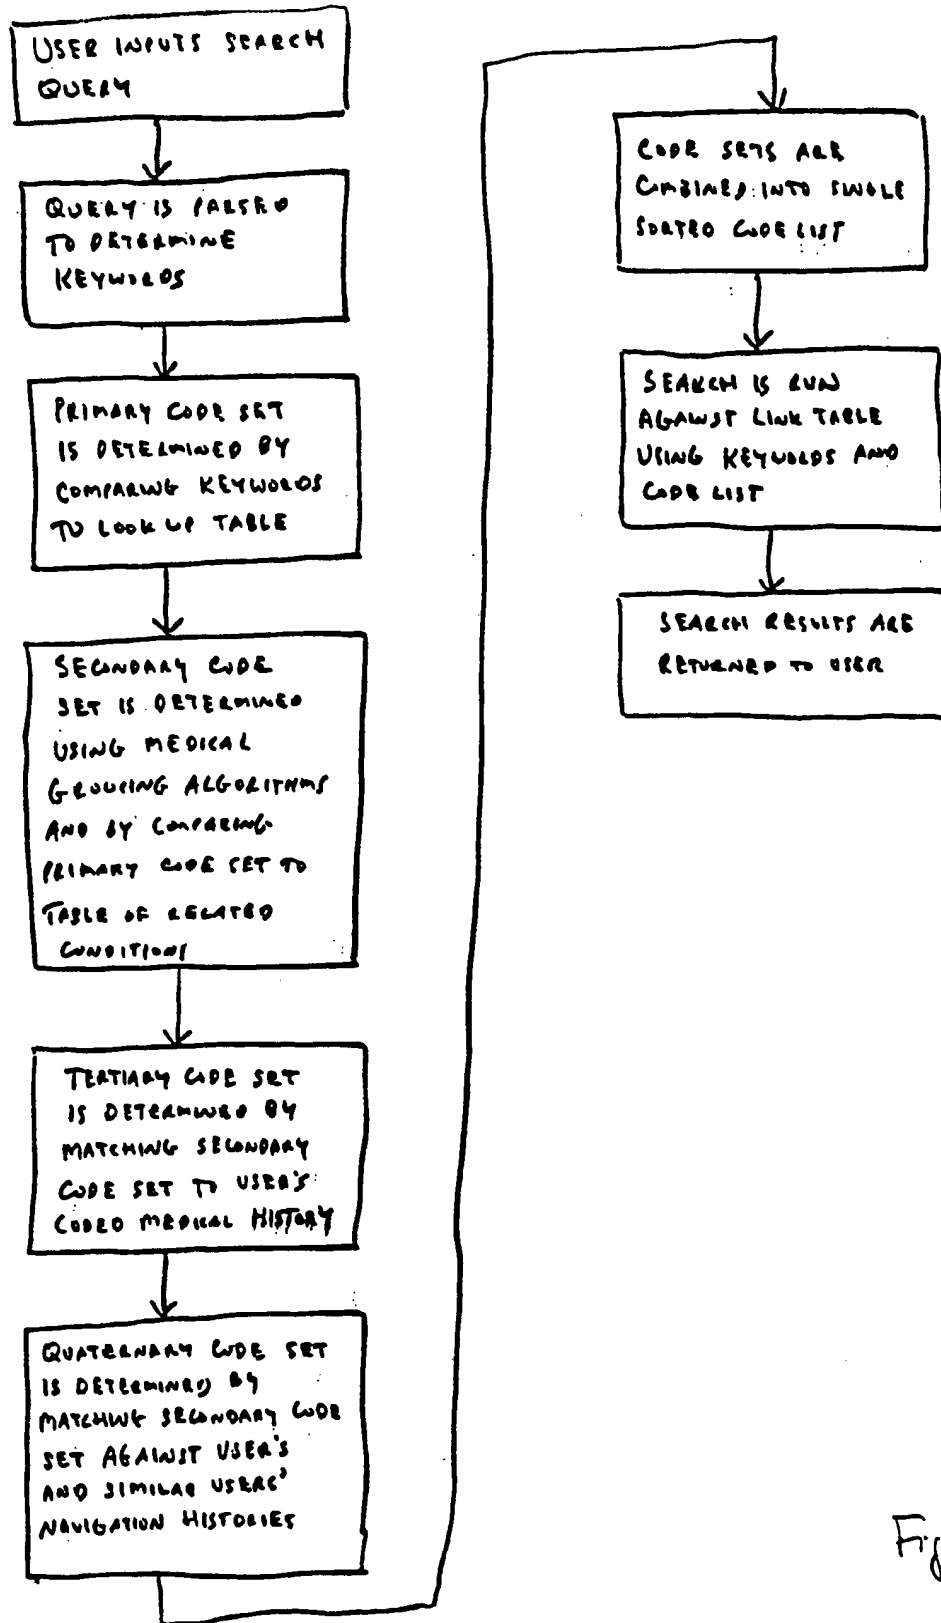 USER INPUTS SEARCH
QUERY
QUERY IS PARSED
TO DETERMINE
KEYWORDS
PRIMARY CODE SET
IS DETERMINED BY
COMPARING KEYWORDS
TO LOOK UP TABLE
SECONDARY CODE
SET IS DETERMINED
USING MEDICAL
GROUPING ALGORITHMS
AND BY COMPARING
PRIMARY CODE SET TO
TABLE OF RELATED
CONDITIONS
TERTIARY CODE SET
IS DETERMINED BY
MATCHING SECONDARY
CODE SET TO USER'S
CODED MEDICAL HISTORY
QUATERNARY CODE SET
IS DETERMINED BY
MATCHING SECONDARY CODE
SET AGAINST USER'S
AND SIMILAR USERS'
NAVIGATION HISTORIES
CODE SETS ARE
COMBINED INTO SINGLE
SORTED CODE LIST
SEARCH IS RUN
AGAINST LINK TABLE
USING KEYWORDS AND
CODE LIST
SEARCH RESULTS ARE
RETURNED TO USER
Fig